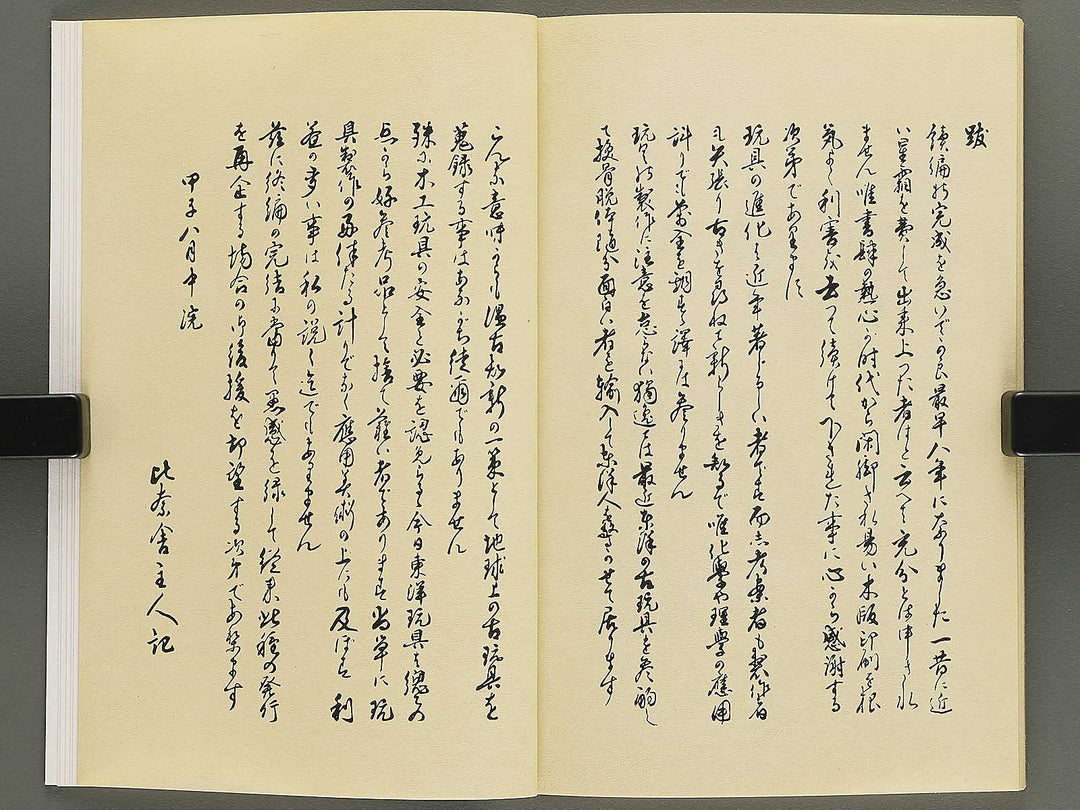 跋
續編の完成を急いでの
最早八年になりました一昔に近
い星霜を費して出来上つた者はと云へば充分とは申され
ません唯書肆の熱心が時代から閑却され易い木版印刷を根
気よく利害を去つて續けて下された事に心から感謝する
次第であります
玩具の進化も近年著しい者です而し考案者も製作者
も矢張り古きを尋ねて新しきを知るで唯化學や理學の應用
計りで萬全を調する譯には参りません
玩具の製作に注意を怠らない獨逸では最近東洋の古玩具を参酌し
て換骨脱体随分面白い者を輸入して東洋人を驚かせて居ります
こんな意味からも温古知新の一策として地球上の古玩具を
蒐録する事はあながち徒爾でもありません
殊に木工玩具の安全と必要を認めらる今日東洋玩具は總ての
点から好参考品として捨て難い者であります尚単に玩
具製作の再体たる計りでなく應用美術の上にも及ぼす利
益の多い事は私の説く迄でもありません
茲に終編の完結に當りて愚感を録して從来此種の発行
を再企する場合の御後援を切望する次第であります
甲子八月中浣
比奈舎主人記